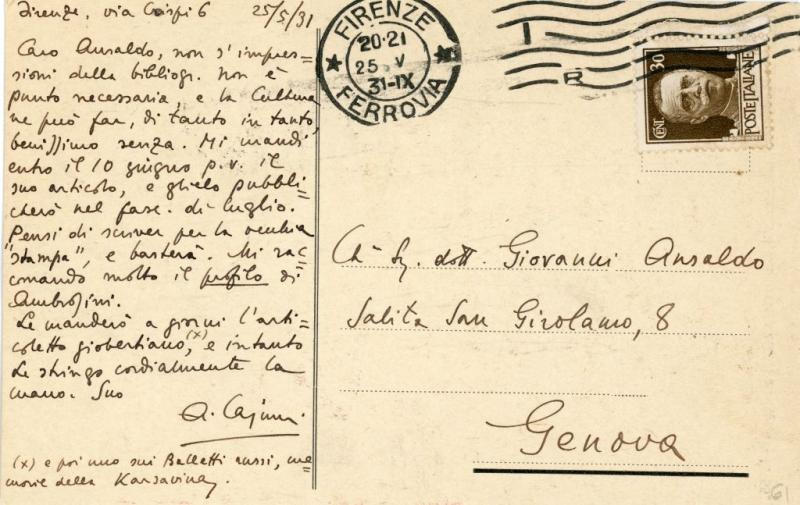 Firenze, via Crispi 6 25/5/31
Caro Ansaldo, non s'impres=
sioni della bibliogr. Non è
punto necessaria, e la Cultura
ne può far, di tanto in tanto,
benissimo senza. Mi mandi
entro il 10 giugno p.v. il
suo articolo, e glielo pubbli=
cherò nel fasc. di luglio.
Pensi di scriver per la vecchia
"stampa", e basterà. Mi rac=
comando molto il profilo di
Ambrosini.
Le manderò a giorni l'arti=
coletto giobertiano,(x) e intanto
Le stringo cordialmente la
mano. Suo
A. Cajumi
(x) e poi uno sui Balletti russi, me=
morie della Karsavina.
FIRENZE
20·21
25 V
31-IX
FERROVIA
I
R
CENT. 30
POSTE ITALIANE
Ch. Sg. dott. Giovanni Ansaldo
Salita San Girolamo, 8
Genova
61